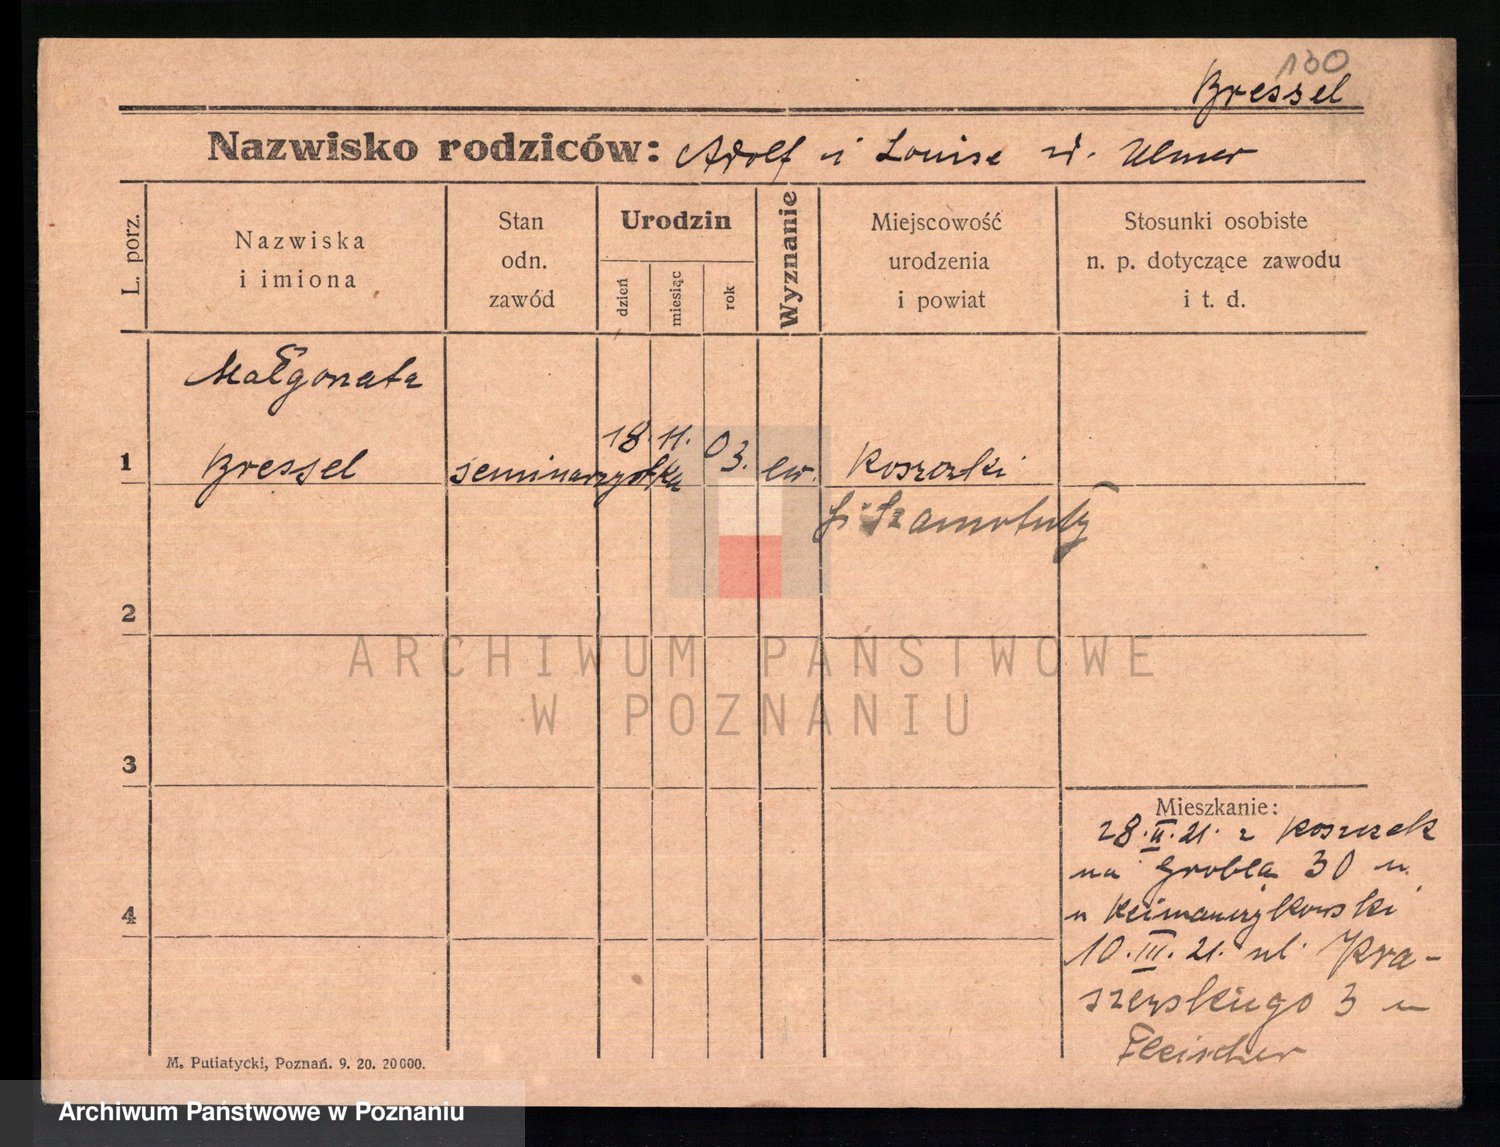 130
Bressel
Nazwisko rodziców: Adolf i Louise zd. Ulmer
L. porz.
Nazwiska
i imiona
Stan
odn.
zawód
Urodzin
dzień
miesiąc
rok
Wyznanie
Miejscowość
urodzenia
i powiat
Stosunki osobiste
n. p. dotyczące zawodu
i t. d.
Małgorzata
1 Bressel seminarzystka 18. 11. 03. ew. Koszczki
Szamotuły
2
3
4
Mieszkanie:
28. II. 21. z Koszczek
na Grobla 30 m.
u
10. III. 21. ul. Kra-
szewskiego 3 u
Fleischer
M. Putiatycki, Poznań. 9. 20. 20000.
ARCHIWUM PAŃSTWOWE
W POZNANIU
Archiwum Państwowe w Poznaniu